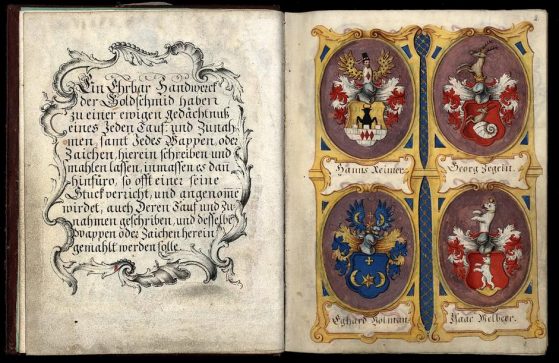 Ein Ehrbar Handwerk
der Goldschmid haben
zu einer ewigen gedächtnuß
eines Jeden Tauf, und Zunah-
men, samt Jedes Wappen, oder
Zaichen, hierein schreiben und
mahlen lassen, inmassen es dan
hinfüro, so offt einer seine
Stuck verricht, und angenome
wirdet, auch Deren Tauf und Zu-
nahmen geschriben, und desselbe
Wappen oder Zaichen herein
gemahlt werden solle.
Hanns Reiner.
Georg
Eghard Holman.
Isaac Melber.